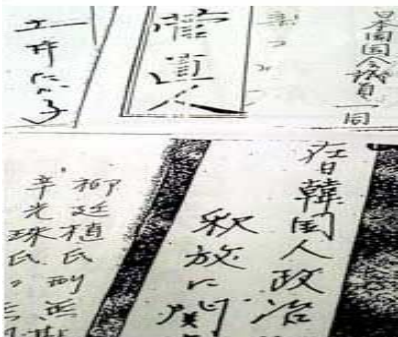 日本国国会議員一同
菅直人
土井たか子
在日韓国人政治
釈放に関
柳廷植氏
辛光珠氏